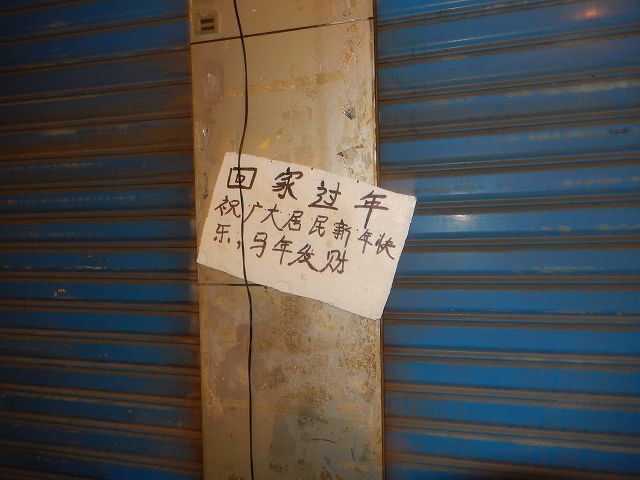 回家过年
祝广大居民新年快
乐，马年发财